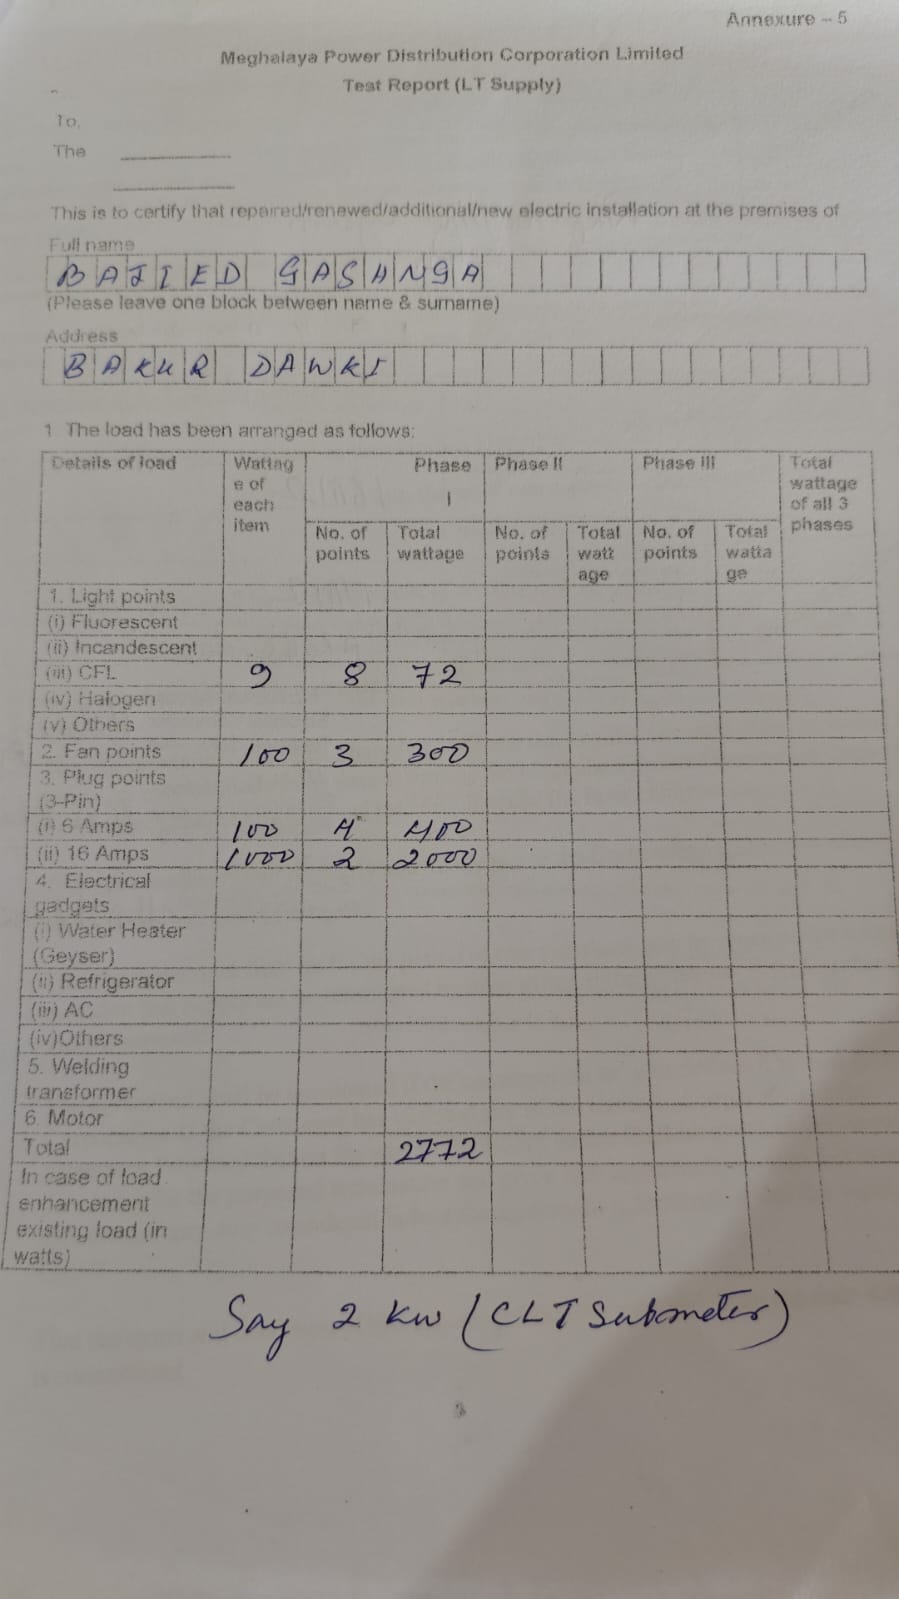 Annexure - 5
Meghalaya Power Distribution Corporation Limited
Test Report (LT Supply)
To,
The
This is to certify that repaired/renewed/additional/new electric installation at the premises of
Full name
BAJIED GASHNGA
(Please leave one block between name & surname)
Address
BAKUR DAWKI
1. The load has been arranged as follows:
Details of load Wattag e of each item Phase I Phase II Phase III Total wattage of all 3 phases
No. of points Total wattage No. of points Total watt age No. of points Total watta ge
1. Light points
(i) Fluorescent
(ii) Incandescent
(iii) CFL 9 8 72
(iv) Halogen
(v) Others
2. Fan points 100 3 300
3. Plug points
(3-Pin)
(i) 6 Amps 100 4 400
(ii) 16 Amps 1000 2 2000
4. Electrical
gadgets
(i) Water Heater
(Geyser)
(ii) Refrigerator
(iii) AC
(iv)Others
5. Welding
transformer
6. Motor
Total 2772
In case of load
enhancement
existing load (in
watts)
Say 2 kw (CLT Submeter)
3